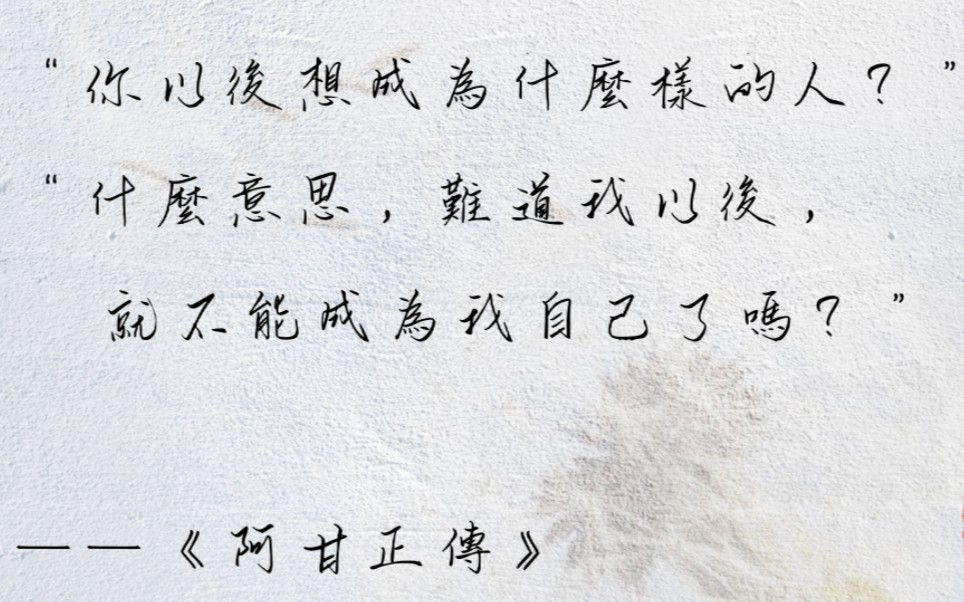 “你以後想成為什麼樣的人？”
“什麼意思，難道我以後，
就不能成為我自己了嗎？”
——《阿甘正傳》